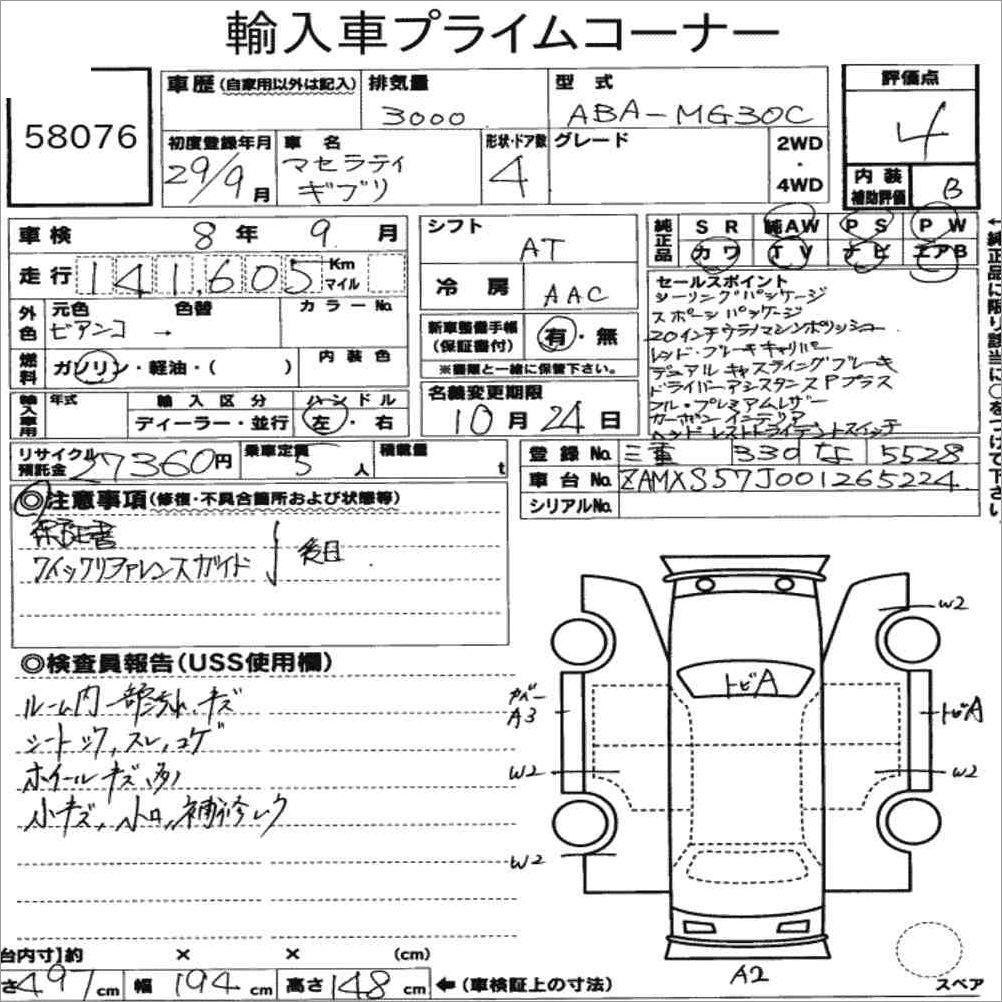 輸入車プライムコーナー
58076
車歴(自家用以外は記入)
排気量 3000
型式 ABA-MG30C
評価点 4
初度登録年月 29/9月
車名 マセラティ ギブリ
形状・ドア数 4
グレード
2WD・4WD
内装補助評価 B
車検 8年 9月
走行 141,605 Km マイル
外色 元色 色替 カラーNo.
ビアンコ →
燃料 ガソリン・軽油・( )
内装色
輸入車用 年式 輸入区分 ハンドル
ディーラー・並行 左・右
シフト AT
冷房 AAC
新車整備手帳(保証書付) 有・無
※書類と一緒に保管下さい。
名義変更期限
10月24日
純正品 SR 純AW PS PW
カワ TV ナビ エアB
←純正品に限り該当に○をつけて下さい
セールスポイント
シーリングパッケージ
スポーツパッケージ
20インチウラノマシンポリッシュ
レッド・ブレーキキャリパー
デュアルキャスティングブレーキ
ドライバーアシスタンスPプラス
フル・プレミアムレザー
カーボンインテリア
ヘッドレストトライデントスイッチ
リサイクル預託金 27360円
乗車定員 5人
積載量 t
登録No. 三重 330 な 5528
車台No. ZAMXS57J001265224
シリアルNo.
◎注意事項(修復・不具合箇所および状態等)
保証書
クイックリファレンスガイド
後日
◎検査員報告(USS使用欄)
ルーム内一部汚れ、キズ
シートシワ、スレ、コゲ
ホイールキズ(多)
小キズ、小凹、補修レク
W2
トビA
カバーA3
トビA
W2
W2
W2
A2
スペア
台内寸】約 × × (cm)
さ497cm 幅194cm 高さ148cm ←(車検証上の寸法)